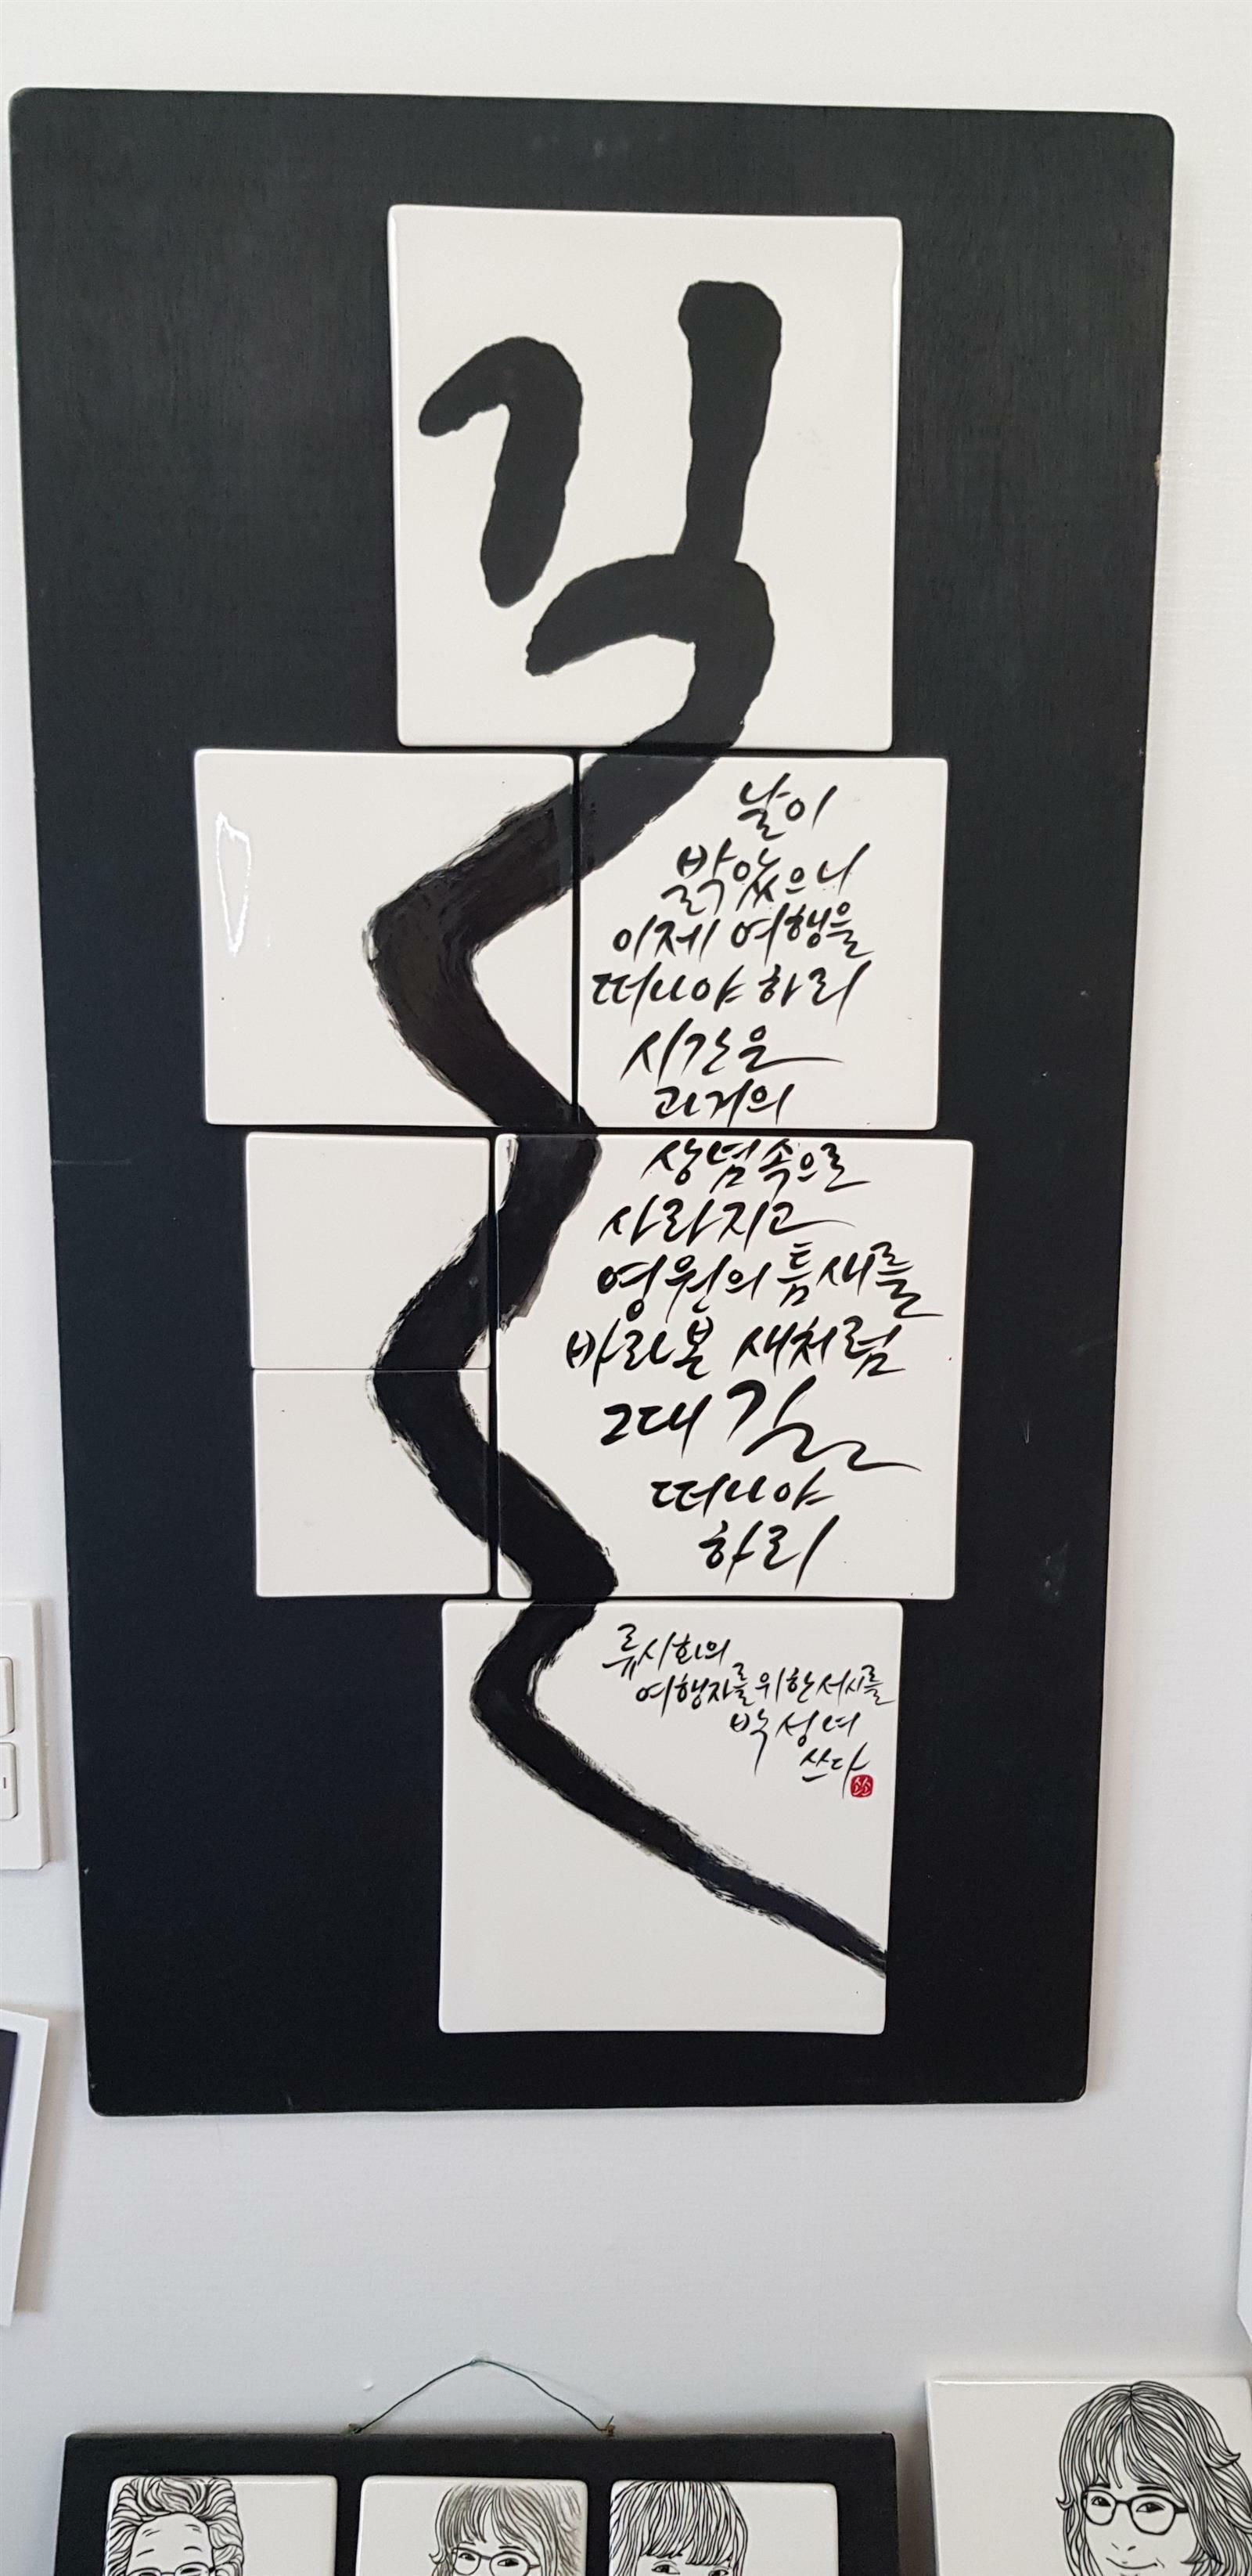 길
날이
밝았으니
이제 여행을
떠나야 하리
시간은
과거의
상념속으로
사라지고
영원의 틈새를
바라본 새처럼
그대 길
떠나야
하리
류시화의
여행자를 위한 서시를
박성녀
쓰다